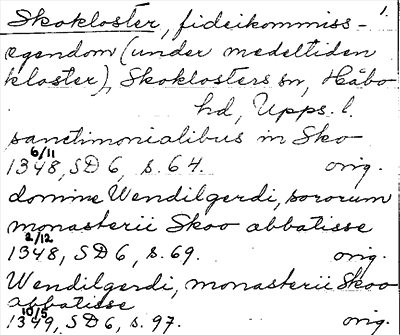 1.
Skokloster, fideikommiss-
egendom (under medeltiden
kloster), Skoklosters sn, Håbo
hd, Upps. l.
sanctimonialibus in Sko
1348 6/11, SD 6, s. 64. orig.
domine Wendilgerdi, sororum
monasterii Skoo abbatisse
1348 2/12, SD 6, s. 69. orig.
Wendilgerdi, monasterii Skoo
abbatisse
1349 10/5, SD 6, s. 97. orig.